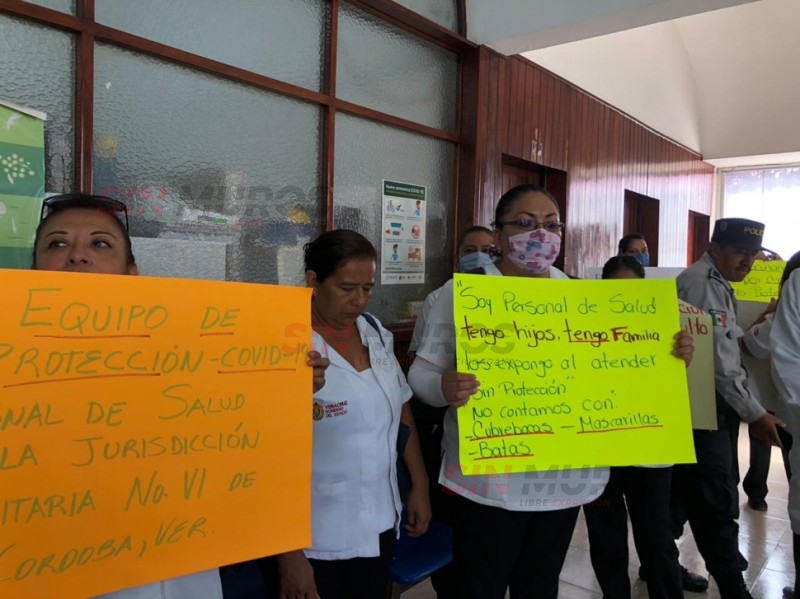 EQUIPO DE
PROTECCIÓN-COVID-1
NAL DE SALUD
LA JURISDICCIÓN
ITARIA No. VI DE
CORDOBA, VER.
"Soy Personal de Salud
tengo hijos, tengo Familia
los expongo al atender
Sin Protección"
No contamos con:
-Cubrebocas - Mascarillas
-Batas
VERACRUZ
GOBIERNO
DEL ESTADO
POLI
COVID
SIN MUROS
SIN MU
LIBRE EXPRESIÓN